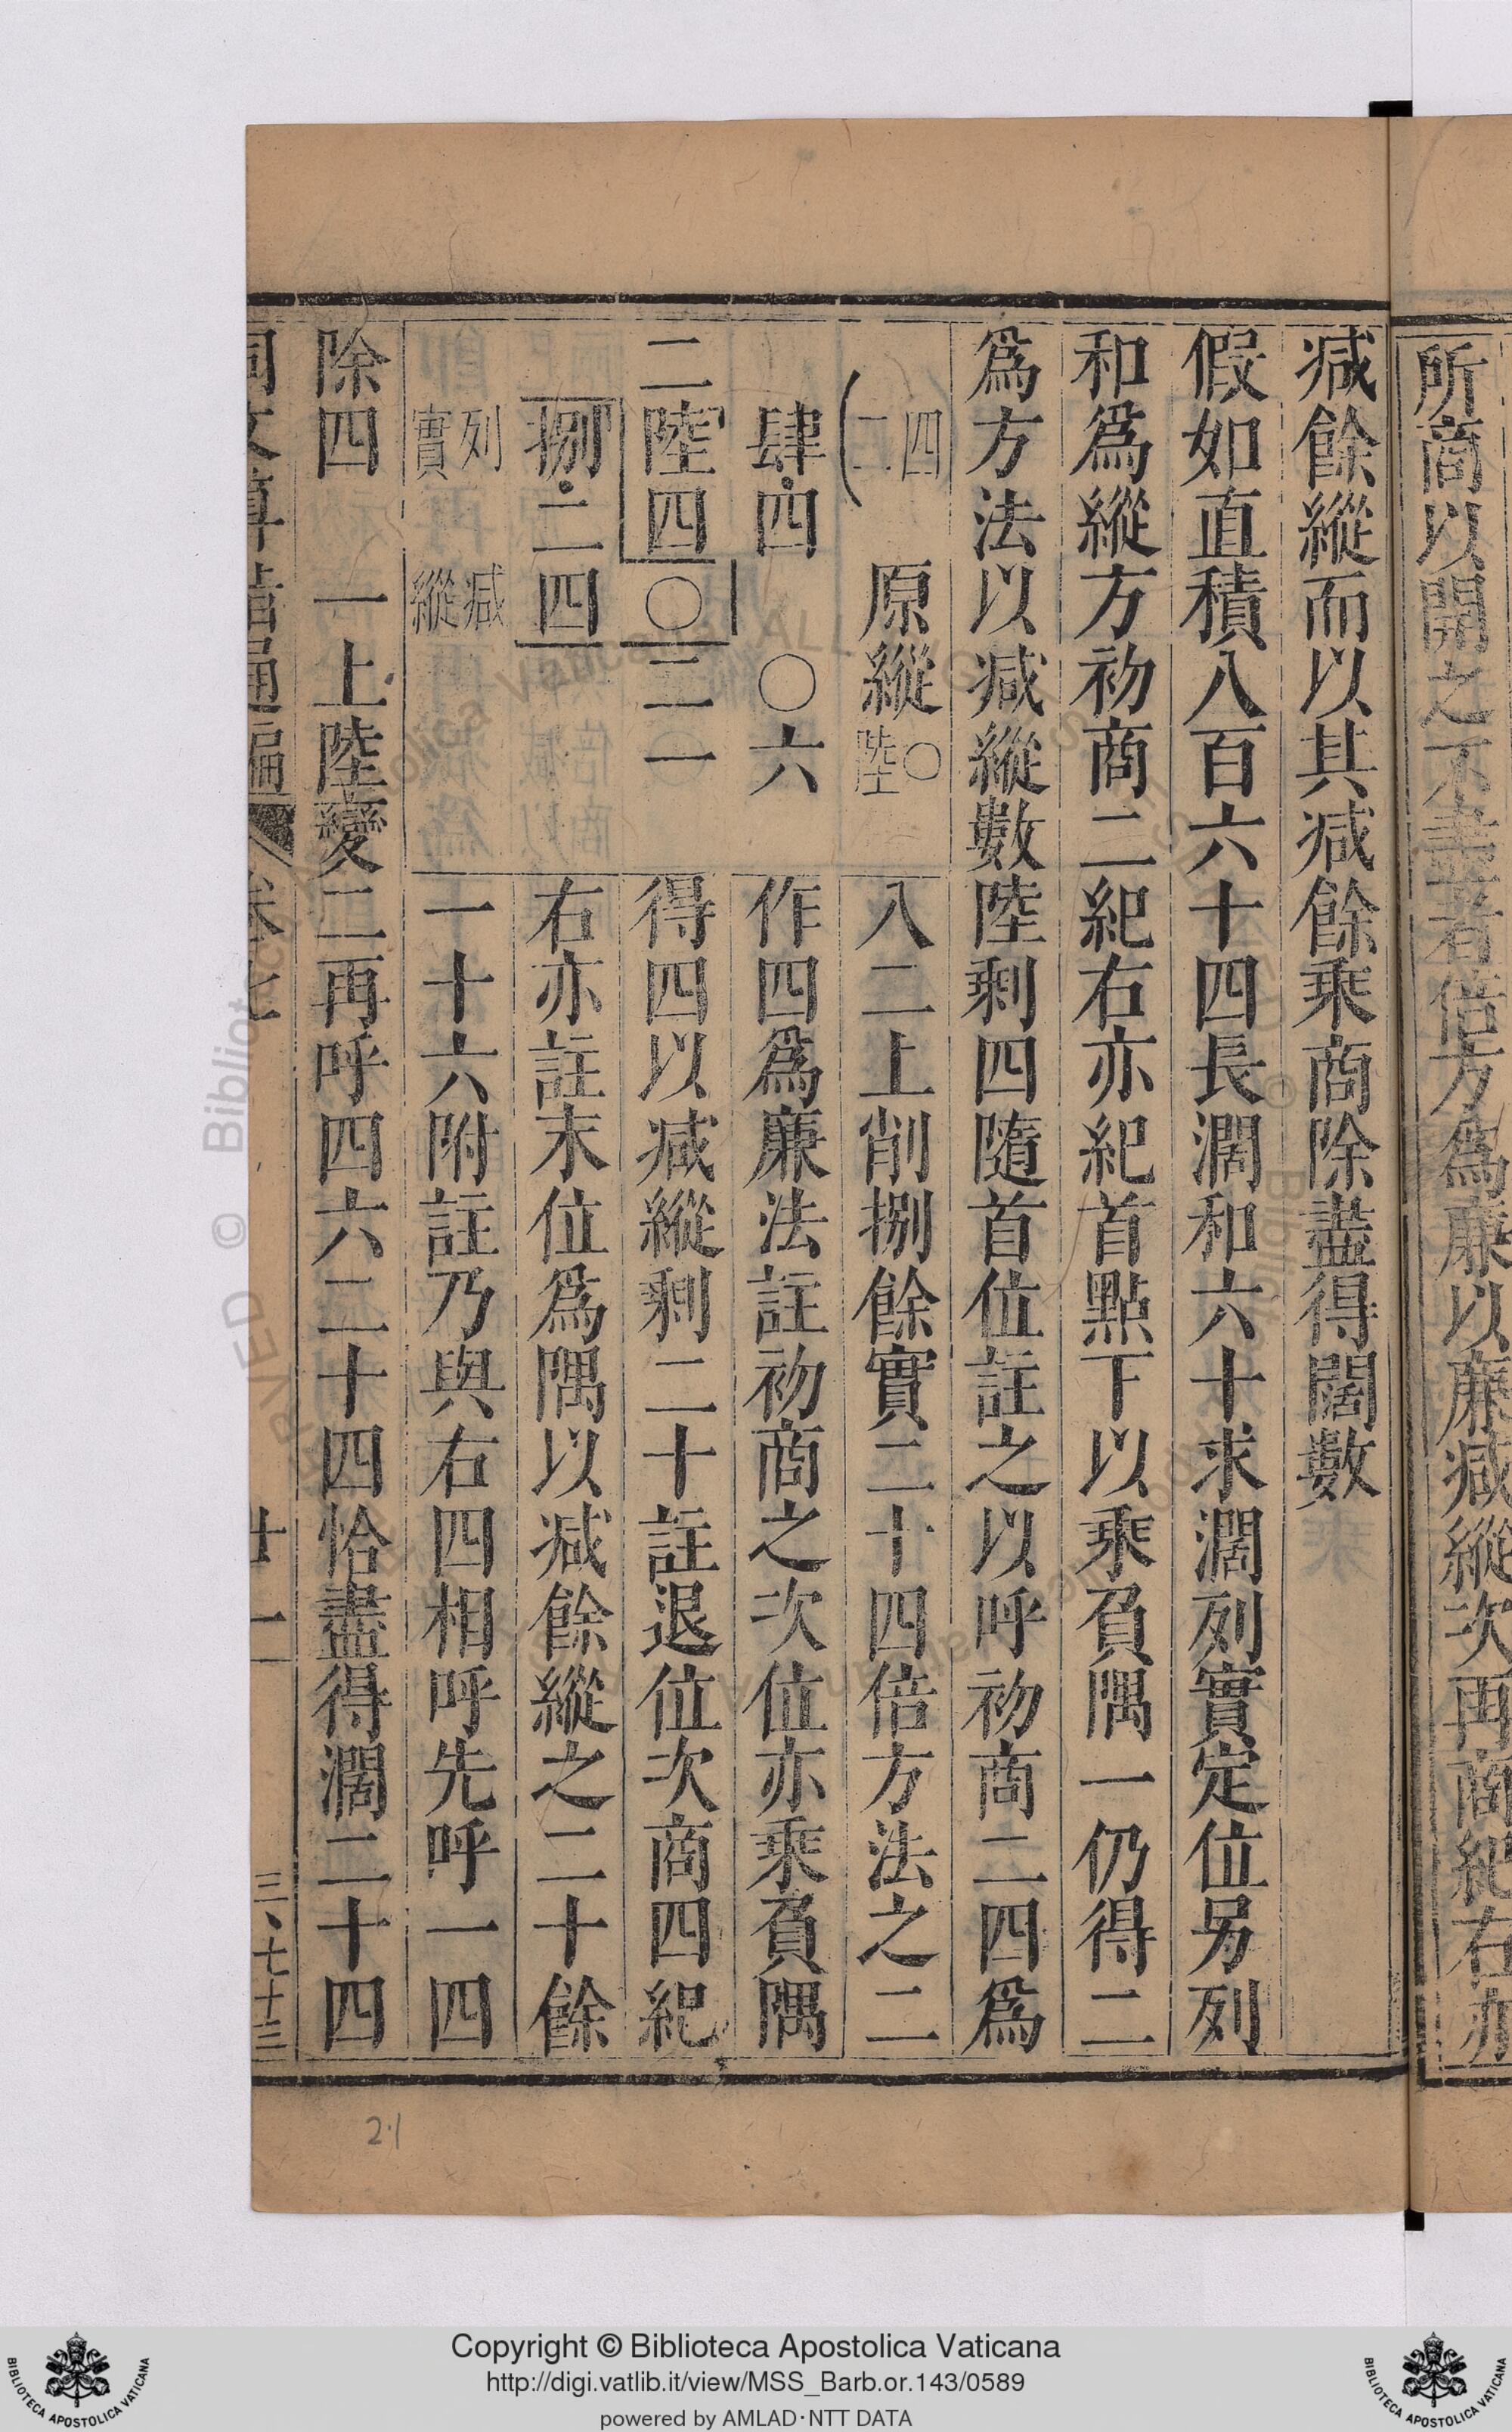 所商以開之不盡者倍方為廉以廉減縱次再商紀右亦
減餘縱而以其減餘乘商除盡得闊數
假如直積八百六十四長濶和六十求濶列實定位另列
和爲縱方初商二紀右亦紀首點下以乘負隅一仍得二
爲方法以減縱數陸剩四隨首位註之以呼初商二四爲
四
二
原縱
〇
陸
八二上削捌餘實二十四倍方法之二
肆四
〇六
作四爲廉法註初商之次位亦乘負隅
二陸四〇二一
得四以減縱剩二十註退位次商四紀
捌二四
右亦註末位爲隅以減餘縱之二十餘
列
實
減
縱
一十六附註乃與右四相呼先呼一四
除四 一上陸變二再呼四六二十四恰盡得濶二十四
同文算指通編 卷七 廿一 三、七十三
21
© Biblioteca Apostolica Vaticana
Copyright © Biblioteca Apostolica Vaticana
http://digi.vatlib.it/view/MSS_Barb.or.143/0589
powered by AMLAD·NTT DATA
BIBLIOTECA APOSTOLICA VATICANA
BIBLIOTECA APOSTOLICA VATICANA